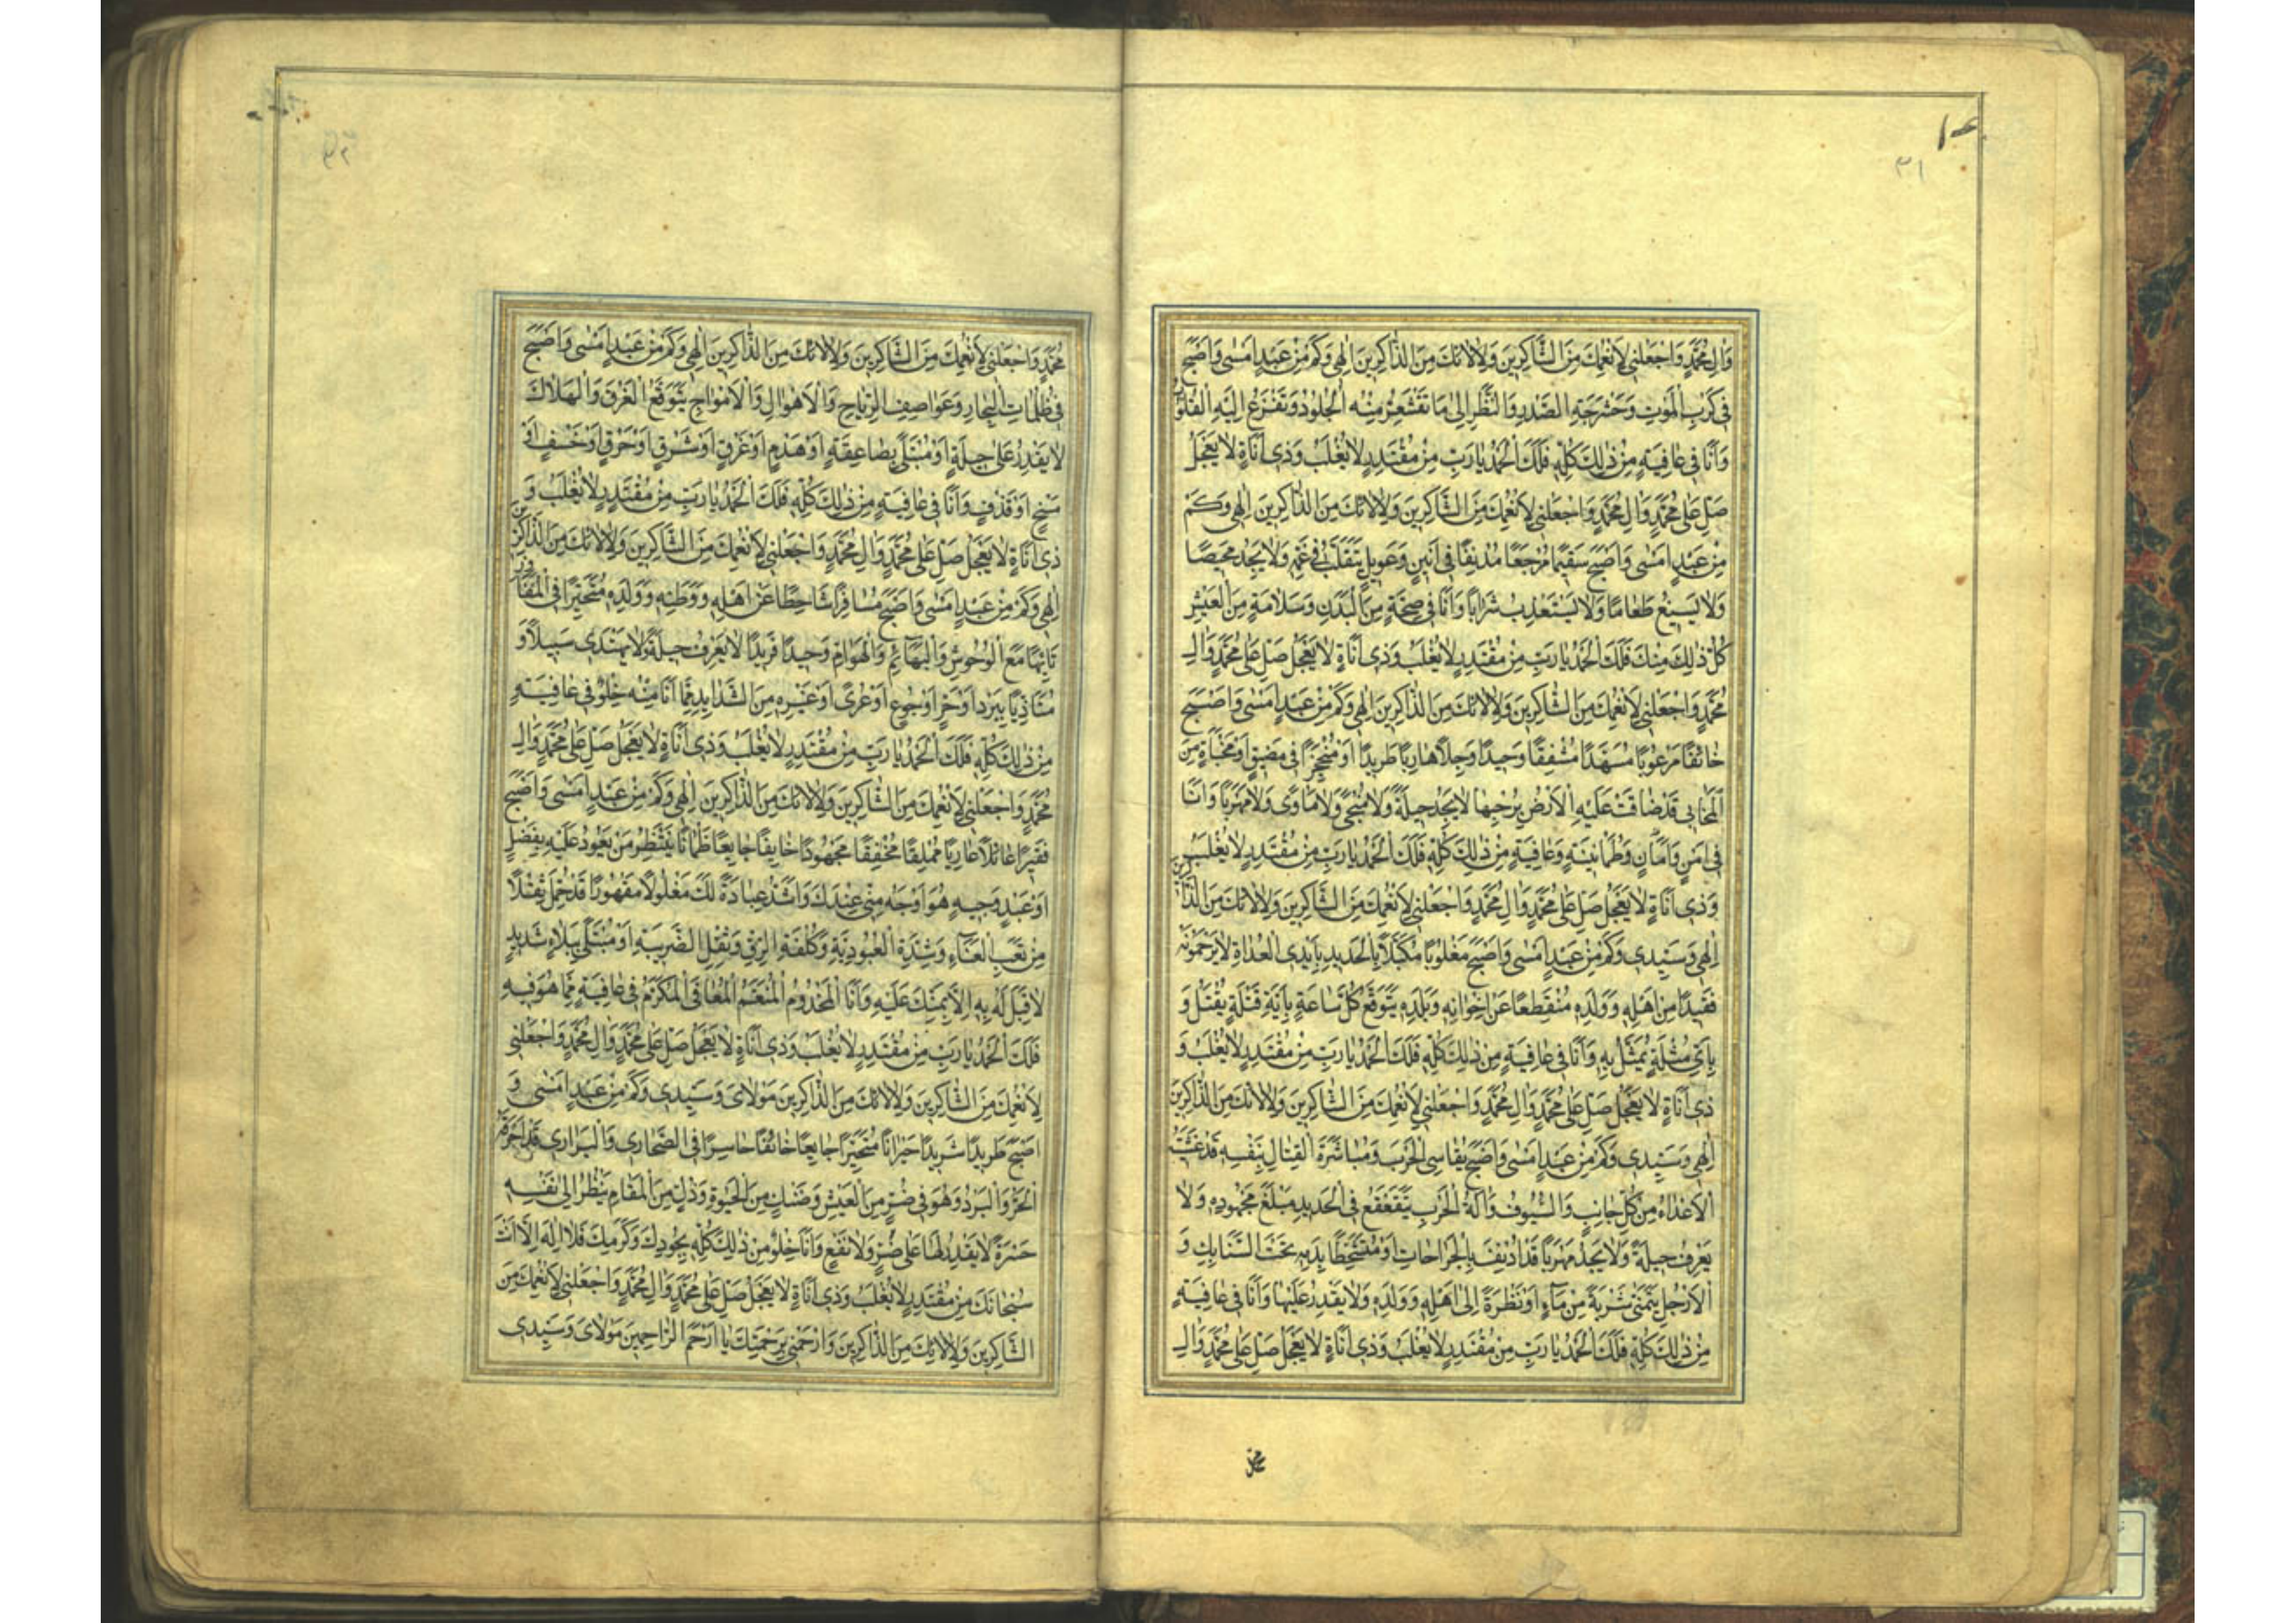 ۳۱
وَالِ مُحَمَّدٍ وَاجْعَلْنِي لِاَنْعُمِكَ مِنَ الشَّاكِرِينَ وَلِاٰلٰائِكَ مِنَ الذَّاكِرِينَ اِلٰهِي وَكَمْ مِنْ عَبْدٍ اَمْسٰى وَاَصْبَحَ
فِي كَرْبِ الْمَوْتِ وَحَشْرَجَةِ الصَّدْرِ وَالنَّظَرِ اِلٰى مَا تَقْشَعِرُّ مِنْهُ الْجُلُودُ وَتَفْزَعُ اِلَيْهِ الْقُلُوبُ
وَاَنَا فِي عَافِيَةٍ مِنْ ذٰلِكَ كُلِّهِ فَلَكَ الْحَمْدُ يَا رَبِّ مِنْ مُقْتَدِرٍ لَا يُغْلَبُ وَذِي اَنَاةٍ لَا يَعْجَلُ
صَلِّ عَلٰى مُحَمَّدٍ وَالِ مُحَمَّدٍ وَاجْعَلْنِي لِاَنْعُمِكَ مِنَ الشَّاكِرِينَ وَلِاٰلٰائِكَ مِنَ الذَّاكِرِينَ اِلٰهِي وَكَمْ
مِنْ عَبْدٍ اَمْسٰى وَاَصْبَحَ سَقِيمًا مُوجَعًا مُدْنِفًا فِي اَنِينٍ وَعَوِيلٍ يَتَقَلَّبُ فِي غَمِّهِ وَلَا يَجِدُ مَحِيصًا
وَلَا يُسِيغُ طَعَامًا وَلَا يَسْتَعْذِبُ شَرَابًا وَاَنَا فِي صِحَّةٍ مِنَ الْبَدَنِ وَسَلَامَةٍ مِنَ الْعَيْشِ
كُلُّ ذٰلِكَ مِنْكَ فَلَكَ الْحَمْدُ يَا رَبِّ مِنْ مُقْتَدِرٍ لَا يُغْلَبُ وَذِي اَنَاةٍ لَا يَعْجَلُ صَلِّ عَلٰى مُحَمَّدٍ وَالِ
مُحَمَّدٍ وَاجْعَلْنِي لِاَنْعُمِكَ مِنَ الشَّاكِرِينَ وَلِاٰلٰائِكَ مِنَ الذَّاكِرِينَ اِلٰهِي وَكَمْ مِنْ عَبْدٍ اَمْسٰى وَاَصْبَحَ
خَائِفًا مَرْعُوبًا مُسَهَّدًا مُشْفِقًا وَحِيدًا وَجِلًا هَارِبًا طَرِيدًا اَوْ مُنْحَجِزًا فِي مَضِيقٍ اَوْ مَخْبَاَةٍ مِنَ
الْمَخَابِي قَدْ ضَاقَتْ عَلَيْهِ الْاَرْضُ بِرُحْبِهَا لَا يَجِدُ حِيلَةً وَلَا مَنْجًى وَلَا مَاْوًى وَلَا مَهْرَبًا وَاَنَا
فِي اَمْنٍ وَاَمَانٍ وَطُمَانِينَةٍ وَعَافِيَةٍ مِنْ ذٰلِكَ كُلِّهِ فَلَكَ الْحَمْدُ يَا رَبِّ مِنْ مُقْتَدِرٍ لَا يُغْلَبُ
وَذِي اَنَاةٍ لَا يَعْجَلُ صَلِّ عَلٰى مُحَمَّدٍ وَالِ مُحَمَّدٍ وَاجْعَلْنِي لِاَنْعُمِكَ مِنَ الشَّاكِرِينَ وَلِاٰلٰائِكَ مِنَ الذَّاكِرِينَ
اِلٰهِي وَسَيِّدِي وَكَمْ مِنْ عَبْدٍ اَمْسٰى وَاَصْبَحَ مَغْلُوبًا مُكَبَّلًا بِالْحَدِيدِ بِاَيْدِي الْعُدَاةِ لَا يَرْحَمُونَهُ
فَقِيدًا مِنْ اَهْلِهِ وَوَلَدِهِ مُنْقَطِعًا عَنْ اِخْوَانِهِ وَبَلَدِهِ يَتَوَقَّعُ كُلَّ سَاعَةٍ بِاَيَّةِ قَتْلَةٍ يُقْتَلُ وَ
بِاَيِّ مُثْلَةٍ يُمَثَّلُ بِهِ وَاَنَا فِي عَافِيَةٍ مِنْ ذٰلِكَ كُلِّهِ فَلَكَ الْحَمْدُ يَا رَبِّ مِنْ مُقْتَدِرٍ لَا يُغْلَبُ وَ
ذِي اَنَاةٍ لَا يَعْجَلُ صَلِّ عَلٰى مُحَمَّدٍ وَالِ مُحَمَّدٍ وَاجْعَلْنِي لِاَنْعُمِكَ مِنَ الشَّاكِرِينَ وَلِاٰلٰائِكَ مِنَ الذَّاكِرِينَ
اِلٰهِي وَسَيِّدِي وَكَمْ مِنْ عَبْدٍ اَمْسٰى وَاَصْبَحَ يُقَاسِي الْحَرْبَ وَمُبَاشَرَةَ الْقِتَالِ بِنَفْسِهِ قَدْ غَشِيَتْهُ
الْاَعْدَاءُ مِنْ كُلِّ جَانِبٍ وَالسُّيُوفُ وَالَةُ الْحَرْبِ يَتَقَعْقَعُ فِي الْحَدِيدِ مَبْلَغَ مَجْهُودِهِ وَلَا
يَعْرِفُ حِيلَةً وَلَا يَجِدُ مَهْرَبًا قَدْ اُدْنِفَ بِالْجَرَاحَاتِ اَوْ مُتَشَحِّطًا بِدَمِهِ تَحْتَ السَّنَابِكِ وَ
الْاَرْجُلِ يَتَمَنّٰى شَرْبَةً مِنْ مَاءٍ اَوْ نَظْرَةً اِلٰى اَهْلِهِ وَوَلَدِهِ وَلَا يَقْدِرُ عَلَيْهَا وَاَنَا فِي عَافِيَةٍ
مِنْ ذٰلِكَ كُلِّهِ فَلَكَ الْحَمْدُ يَا رَبِّ مِنْ مُقْتَدِرٍ لَا يُغْلَبُ وَذِي اَنَاةٍ لَا يَعْجَلُ صَلِّ عَلٰى مُحَمَّدٍ وَالِ
محمد
مُحَمَّدٍ وَاجْعَلْنِي لِاَنْعُمِكَ مِنَ الشَّاكِرِينَ وَلِاٰلٰائِكَ مِنَ الذَّاكِرِينَ اِلٰهِي وَكَمْ مِنْ عَبْدٍ اَمْسٰى وَاَصْبَحَ
فِي ظُلُمَاتِ الْبِحَارِ وَعَوَاصِفِ الرِّيَاحِ وَالْاَهْوَالِ وَالْاَمْوَاجِ يَتَوَقَّعُ الْغَرَقَ وَالْهَلَاكَ
لَا يَقْدِرُ عَلٰى حِيلَةٍ اَوْ مُبْتَلًى بِصَاعِقَةٍ اَوْ هَدْمٍ اَوْ غَرَقٍ اَوْ شَرَقٍ اَوْ حَرَقٍ اَوْ خَسْفٍ اَوْ
مَسْخٍ اَوْ قَذْفٍ وَاَنَا فِي عَافِيَةٍ مِنْ ذٰلِكَ كُلِّهِ فَلَكَ الْحَمْدُ يَا رَبِّ مِنْ مُقْتَدِرٍ لَا يُغْلَبُ وَ
ذِي اَنَاةٍ لَا يَعْجَلُ صَلِّ عَلٰى مُحَمَّدٍ وَالِ مُحَمَّدٍ وَاجْعَلْنِي لِاَنْعُمِكَ مِنَ الشَّاكِرِينَ وَلِاٰلٰائِكَ مِنَ الذَّاكِرِينَ
اِلٰهِي وَكَمْ مِنْ عَبْدٍ اَمْسٰى وَاَصْبَحَ مُسَافِرًا شَاحِطًا عَنْ اَهْلِهِ وَوَطَنِهِ وَوَلَدِهِ مُتَحَيِّرًا فِي الْمَفَاوِزِ
تَائِهًا مَعَ الْوُحُوشِ وَالْبَهَائِمِ وَالْهَوَامِّ وَحِيدًا فَرِيدًا لَا يَعْرِفُ حِيلَةً وَلَا يَهْتَدِي سَبِيلًا وَ
مُتَاَذِّيًا بِبَرْدٍ اَوْ حَرٍّ اَوْ جُوعٍ اَوْ عُرْىً اَوْ غَيْرِهِ مِنَ الشَّدَايِدِ مِمَّا اَنَا مِنْهُ خِلْوٌ فِي عَافِيَةٍ
مِنْ ذٰلِكَ كُلِّهِ فَلَكَ الْحَمْدُ يَا رَبِّ مِنْ مُقْتَدِرٍ لَا يُغْلَبُ وَذِي اَنَاةٍ لَا يَعْجَلُ صَلِّ عَلٰى مُحَمَّدٍ وَالِ
مُحَمَّدٍ وَاجْعَلْنِي لِاَنْعُمِكَ مِنَ الشَّاكِرِينَ وَلِاٰلٰائِكَ مِنَ الذَّاكِرِينَ اِلٰهِي وَكَمْ مِنْ عَبْدٍ اَمْسٰى وَاَصْبَحَ
فَقِيرًا عَائِلًا عَارِيًا مُمْلِقًا مُخْفِقًا مَجْهُودًا خَايِفًا جَايِعًا ظَمْاٰنًا يَنْتَظِرُ مَنْ يَعُودُ عَلَيْهِ بِفَضْلٍ
اَوْ عَبْدٍ وَجِيهٍ هُوَ اَوْجَهُ مِنِّي عِنْدَكَ وَاَشَدُّ عِبَادَةً لَكَ مَغْلُولًا مَقْهُورًا قَدْ حُمِّلَ ثِقْلًا
مِنْ تَعَبِ الْعَنَاءِ وَشِدَّةِ الْعُبُودِيَّةِ وَكُلْفَةِ الرِّقِّ وَثِقْلِ الضَّرِيبَةِ اَوْ مُبْتَلًى بِبَلَاءٍ شَدِيدٍ
لَا قِبَلَ لَهُ بِهِ اِلَّا بِمَنِّكَ عَلَيْهِ وَاَنَا الْمَخْدُومُ الْمُنَعَّمُ الْمُعَافَى الْمُكَرَّمُ فِي عَافِيَةٍ مِمَّا هُوَ فِيهِ
فَلَكَ الْحَمْدُ يَا رَبِّ مِنْ مُقْتَدِرٍ لَا يُغْلَبُ وَذِي اَنَاةٍ لَا يَعْجَلُ صَلِّ عَلٰى مُحَمَّدٍ وَالِ مُحَمَّدٍ وَاجْعَلْنِي
لِاَنْعُمِكَ مِنَ الشَّاكِرِينَ وَلِاٰلٰائِكَ مِنَ الذَّاكِرِينَ مَوْلَايَ وَسَيِّدِي وَكَمْ مِنْ عَبْدٍ اَمْسٰى وَ
اَصْبَحَ طَرِيدًا شَرِيدًا حَيْرَانًا مُتَحَيِّرًا جَايِعًا خَائِفًا حَاسِرًا فِي الصَّحَارِي وَالْبَرَارِي قَدْ اَحْرَقَهُ
الْحَرُّ وَالْبَرْدُ وَهُوَ فِي ضُرٍّ مِنَ الْعَيْشِ وَضَنْكٍ مِنَ الْحَيٰوةِ وَذُلٍّ مِنَ الْمَقَامِ يَنْظُرُ اِلٰى نَفْسِهِ
حَسْرَةً لَا يَقْدِرُ لَهَا عَلٰى ضُرٍّ وَلَا نَفْعٍ وَاَنَا خِلْوٌ مِنْ ذٰلِكَ كُلِّهِ بِجُودِكَ وَكَرَمِكَ فَلَا اِلٰهَ اِلَّا اَنْتَ
سُبْحَانَكَ مِنْ مُقْتَدِرٍ لَا يُغْلَبُ وَذِي اَنَاةٍ لَا يَعْجَلُ صَلِّ عَلٰى مُحَمَّدٍ وَالِ مُحَمَّدٍ وَاجْعَلْنِي لِاَنْعُمِكَ مِنَ
الشَّاكِرِينَ وَلِاٰلٰائِكَ مِنَ الذَّاكِرِينَ وَارْحَمْنِي بِرَحْمَتِكَ يَا اَرْحَمَ الرَّاحِمِينَ مَوْلَايَ وَسَيِّدِي